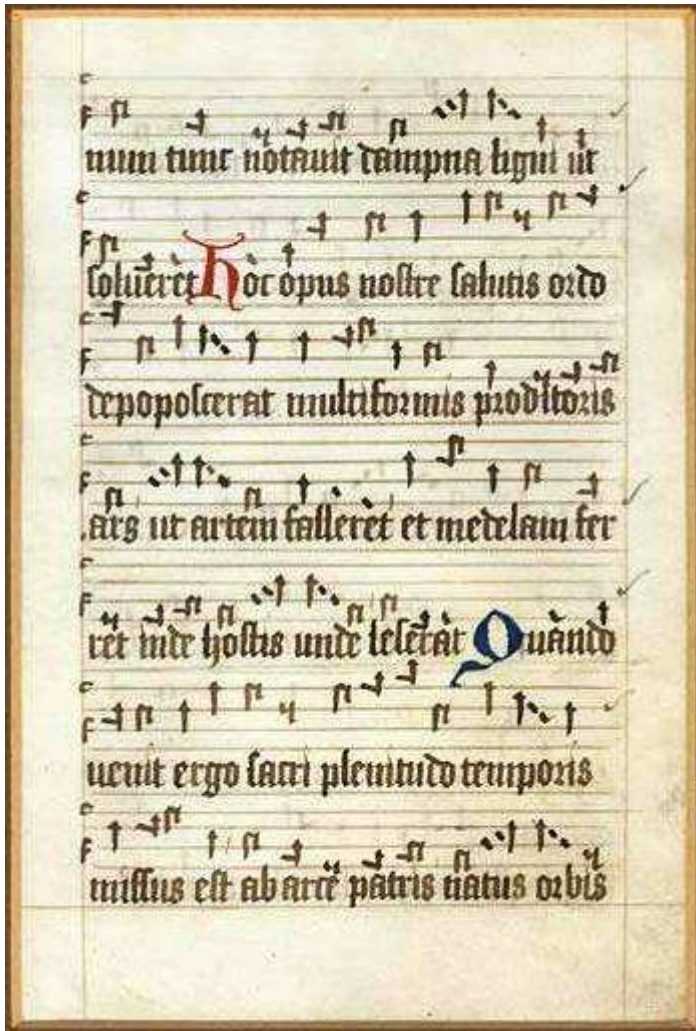 num tunc notavit dampna ligni ut
solveret Hoc opus nostre salutis ordo
depoposcerat multiformis proditoris
ars ut artem falleret et medelam fer
ret inde hostis unde leserat Quando
venit ergo sacri plenitudo temporis
missus est ab arce patris natus orbis